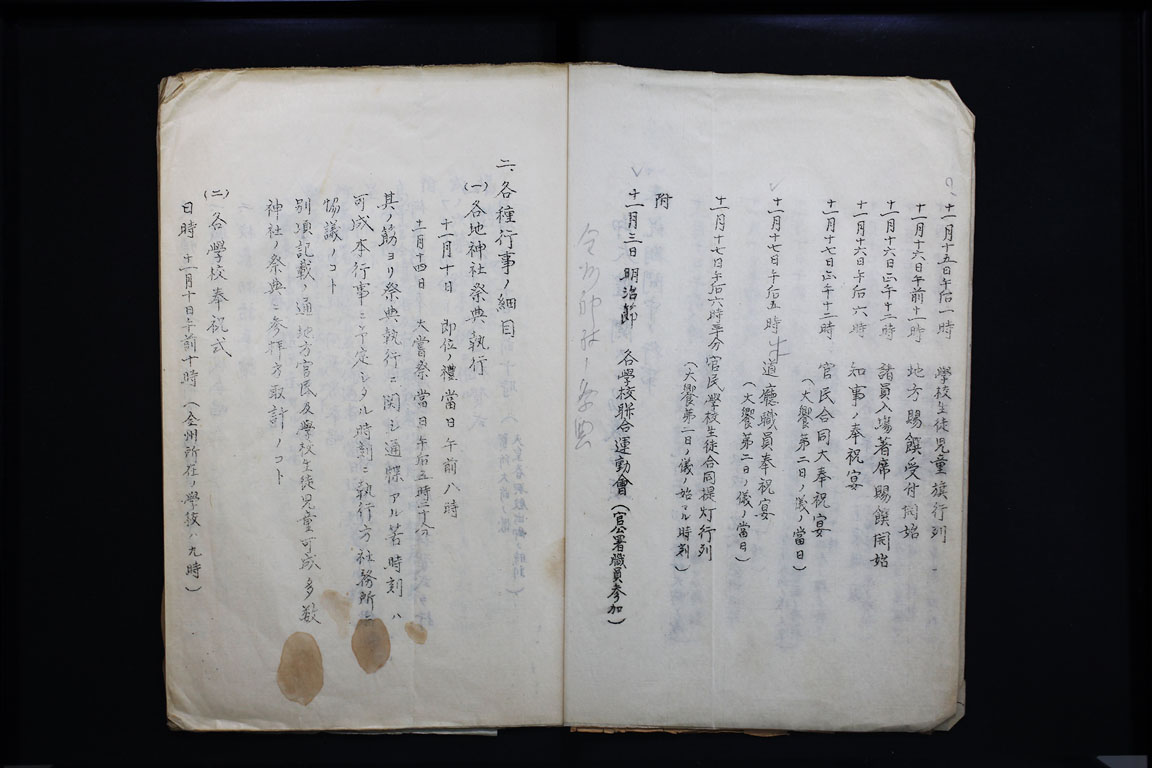 十一月十五日午后一時 學校生徒児童旗行列
十一月十六日午前十一時 地方賜饌受付開始
十一月十六日正午十二時 諸員入場著席賜饌開始
十一月十六日午后六時 知事ノ奉祝宴
十一月十七日正午十二時 官民合同大奉祝宴
(大饗第二日ノ儀ノ當日)
十一月十七日午后五時 道廳職員奉祝宴
(大饗第二日ノ儀ノ當日)
十一月十七日午后六時半分 官民學校生徒合同提灯行列
(大饗第二日ノ儀ノ始マル時刻)
附
十一月三日 明治節 各學校聯合運動會(官公署職員参加)
全州神社ノ祭典
二、各種行事ノ細目
(一)各地神社祭典執行
十一月十日 即位ノ禮當日午前八時
十一月十四日 大嘗祭當日午后五時三十分
其ノ筋ヨリ祭典執行ニ関シ通牒アル筈時刻ハ
可成本行事ニ予定シタル時刻ニ執行方社務所ニ
協議ノコト
別項記載ノ通地方官民及學校生徒児童可成多数
神社ノ祭典ニ参拝方取計ノコト
(二)各學校奉祝式
日時 十一月十日午前十時(全州所在ノ學校ハ九時)